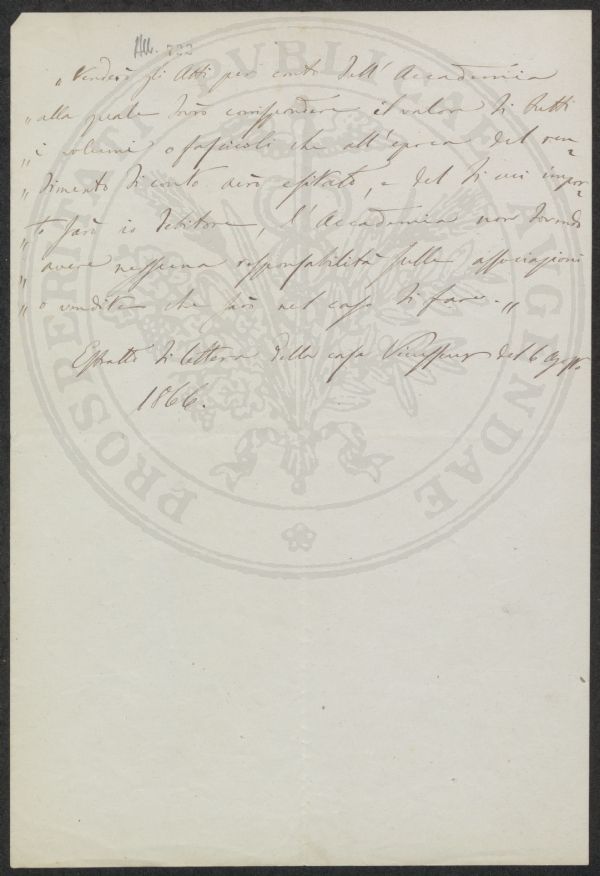 All. 733
„ Venderò gli Atti per conto dell' Accademia
„ alla quale dovrò corrispondere il valore di tutti
„ i volumi o fascicoli che all' epoca del ren=
„ dimento di conto avrò esitato, e del di cui impor=
„ to sarò io debitore, l' Accademia non dovendo
„ avere nessuna responsabilità sulle associazioni
„ o vendite che sarò nel caso di fare. „
Estratto di lettera della casa Vieusseux del 6 Agosto
1866.
PROSPERITATI PVBLICAE AVGENDAE